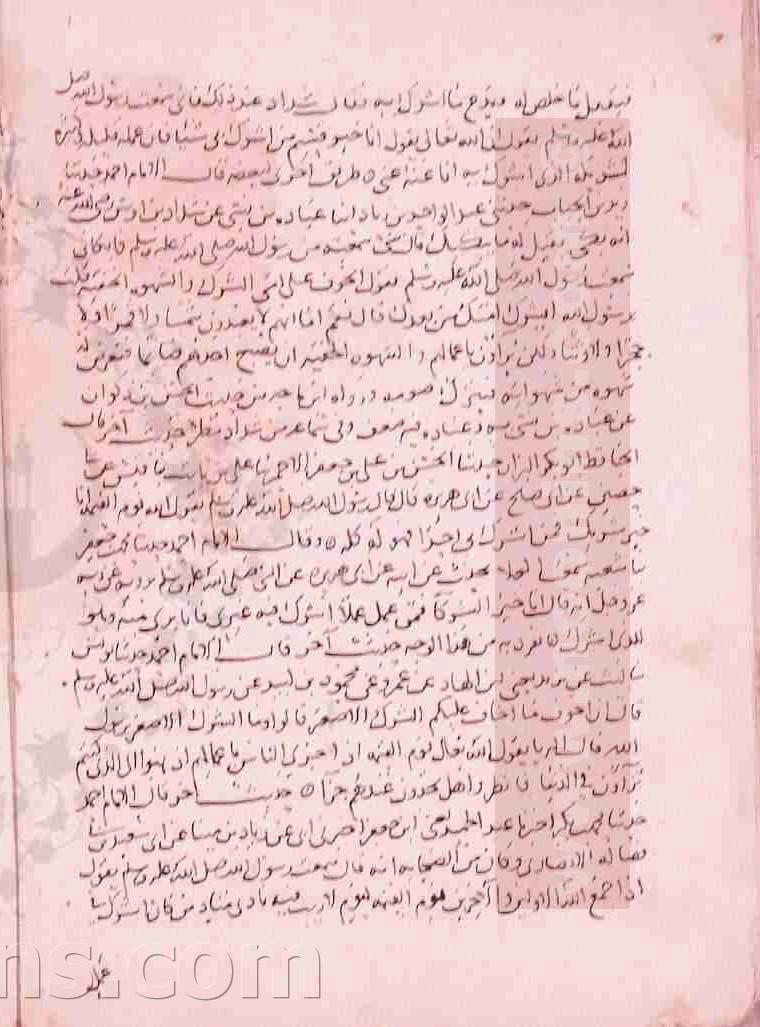 فيقبل ما خلص له ويدع ما اشرك به فقال شداد عند ذلك فاني سمعت رسول الله صلى
الله عليه وسلم يقول ان الله تعالى يقول انا خير قسيم لمن اشرك بي من اشرك بي شيئا فان عمله قليله وكثيره
لشريكه الذي اشرك به انا عنه غني ○ طريق اخرى لبعضه قال الامام احمد حدثنا
زيد بن الحباب حدثني عبد الواحد بن زياد انا عبادة بن نسي عن شداد بن اوس رضي الله عنه
انه بكى فقيل له ما يبكيك قال شي سمعته من رسول الله صلى الله عليه وسلم فابكاني
سمعت رسول الله صلى الله عليه وسلم يقول اتخوف على امتي الشرك والشهوة الخفية قلت
يرسول الله اتشرك امتك من بعدك قال نعم اما انهم لا يعبدون شمسا ولا قمرا ولا
حجرا ولا وثنا ولكن يراؤن باعمالهم والشهوة الخفية ان يصبح احدهم صايما فتعرض له
شهوة من شهواته فيترك صومه ورواه ابن ماجه من حديث الحسن بن ذكوان
عن عبادة بن نسي به وعبادة فيه ضعف وفي سماعه من شداد نظر حديث آخر قال
الحافظ ابو بكر البزار حدثنا الحسين بن علي بن جعفر الاحمر نا علي بن ثابت نا قيس عن
حصين عن ابي صالح عن ابي هريرة قال قال رسول الله صلى الله عليه وسلم يقول الله يوم القيمة انا
خير شريك فمن اشرك بي احدا فهو له كله ○ وقال الامام احمد حدثنا محمد بن جعفر
نا شعبة سمعت العلا يحدث عن ابيه عن ابي هريرة عن النبي صلى الله عليه وسلم يرويه عن ربه
عز وجل انه قال انا خير الشركا فمن عمل عملا اشرك فيه غيري فانا بري منه وهو
للذي اشرك تفرد به من هذا الوجه حديث آخر قال الامام احمد حدثنا يونس
نا ليث عن يزيد يعني ابن الهاد عن عمرو عن محمود بن لبيد عن رسول الله صلى الله عليه وسلم
قال ان اخوف ما اخاف عليكم الشرك الاصغر قالوا وما الشرك الاصغر يرسول
الله قال الريا يقول الله تعالى يوم القيمة اذا جزى الناس باعمالهم اذهبوا الى الذين كنتم
تراؤن في الدنيا فانظروا هل تجدون عندهم جزآ ○ حديث آخر قال الامام احمد
حدثنا محمد بن بكر اخبرنا عبد الحميد يعني ابن جعفر اخبرني ابي عن زياد بن مينا عن ابي سعيد بن
فضالة الانصاري وكان من الصحابة انه قال سمعت رسول الله صلى الله عليه وسلم يقول
اذا جمع الله الاولين والآخرين ليوم القيمة ليوم لا ريب فيه نادى مناد من كان اشرك في
عمله
ns.com